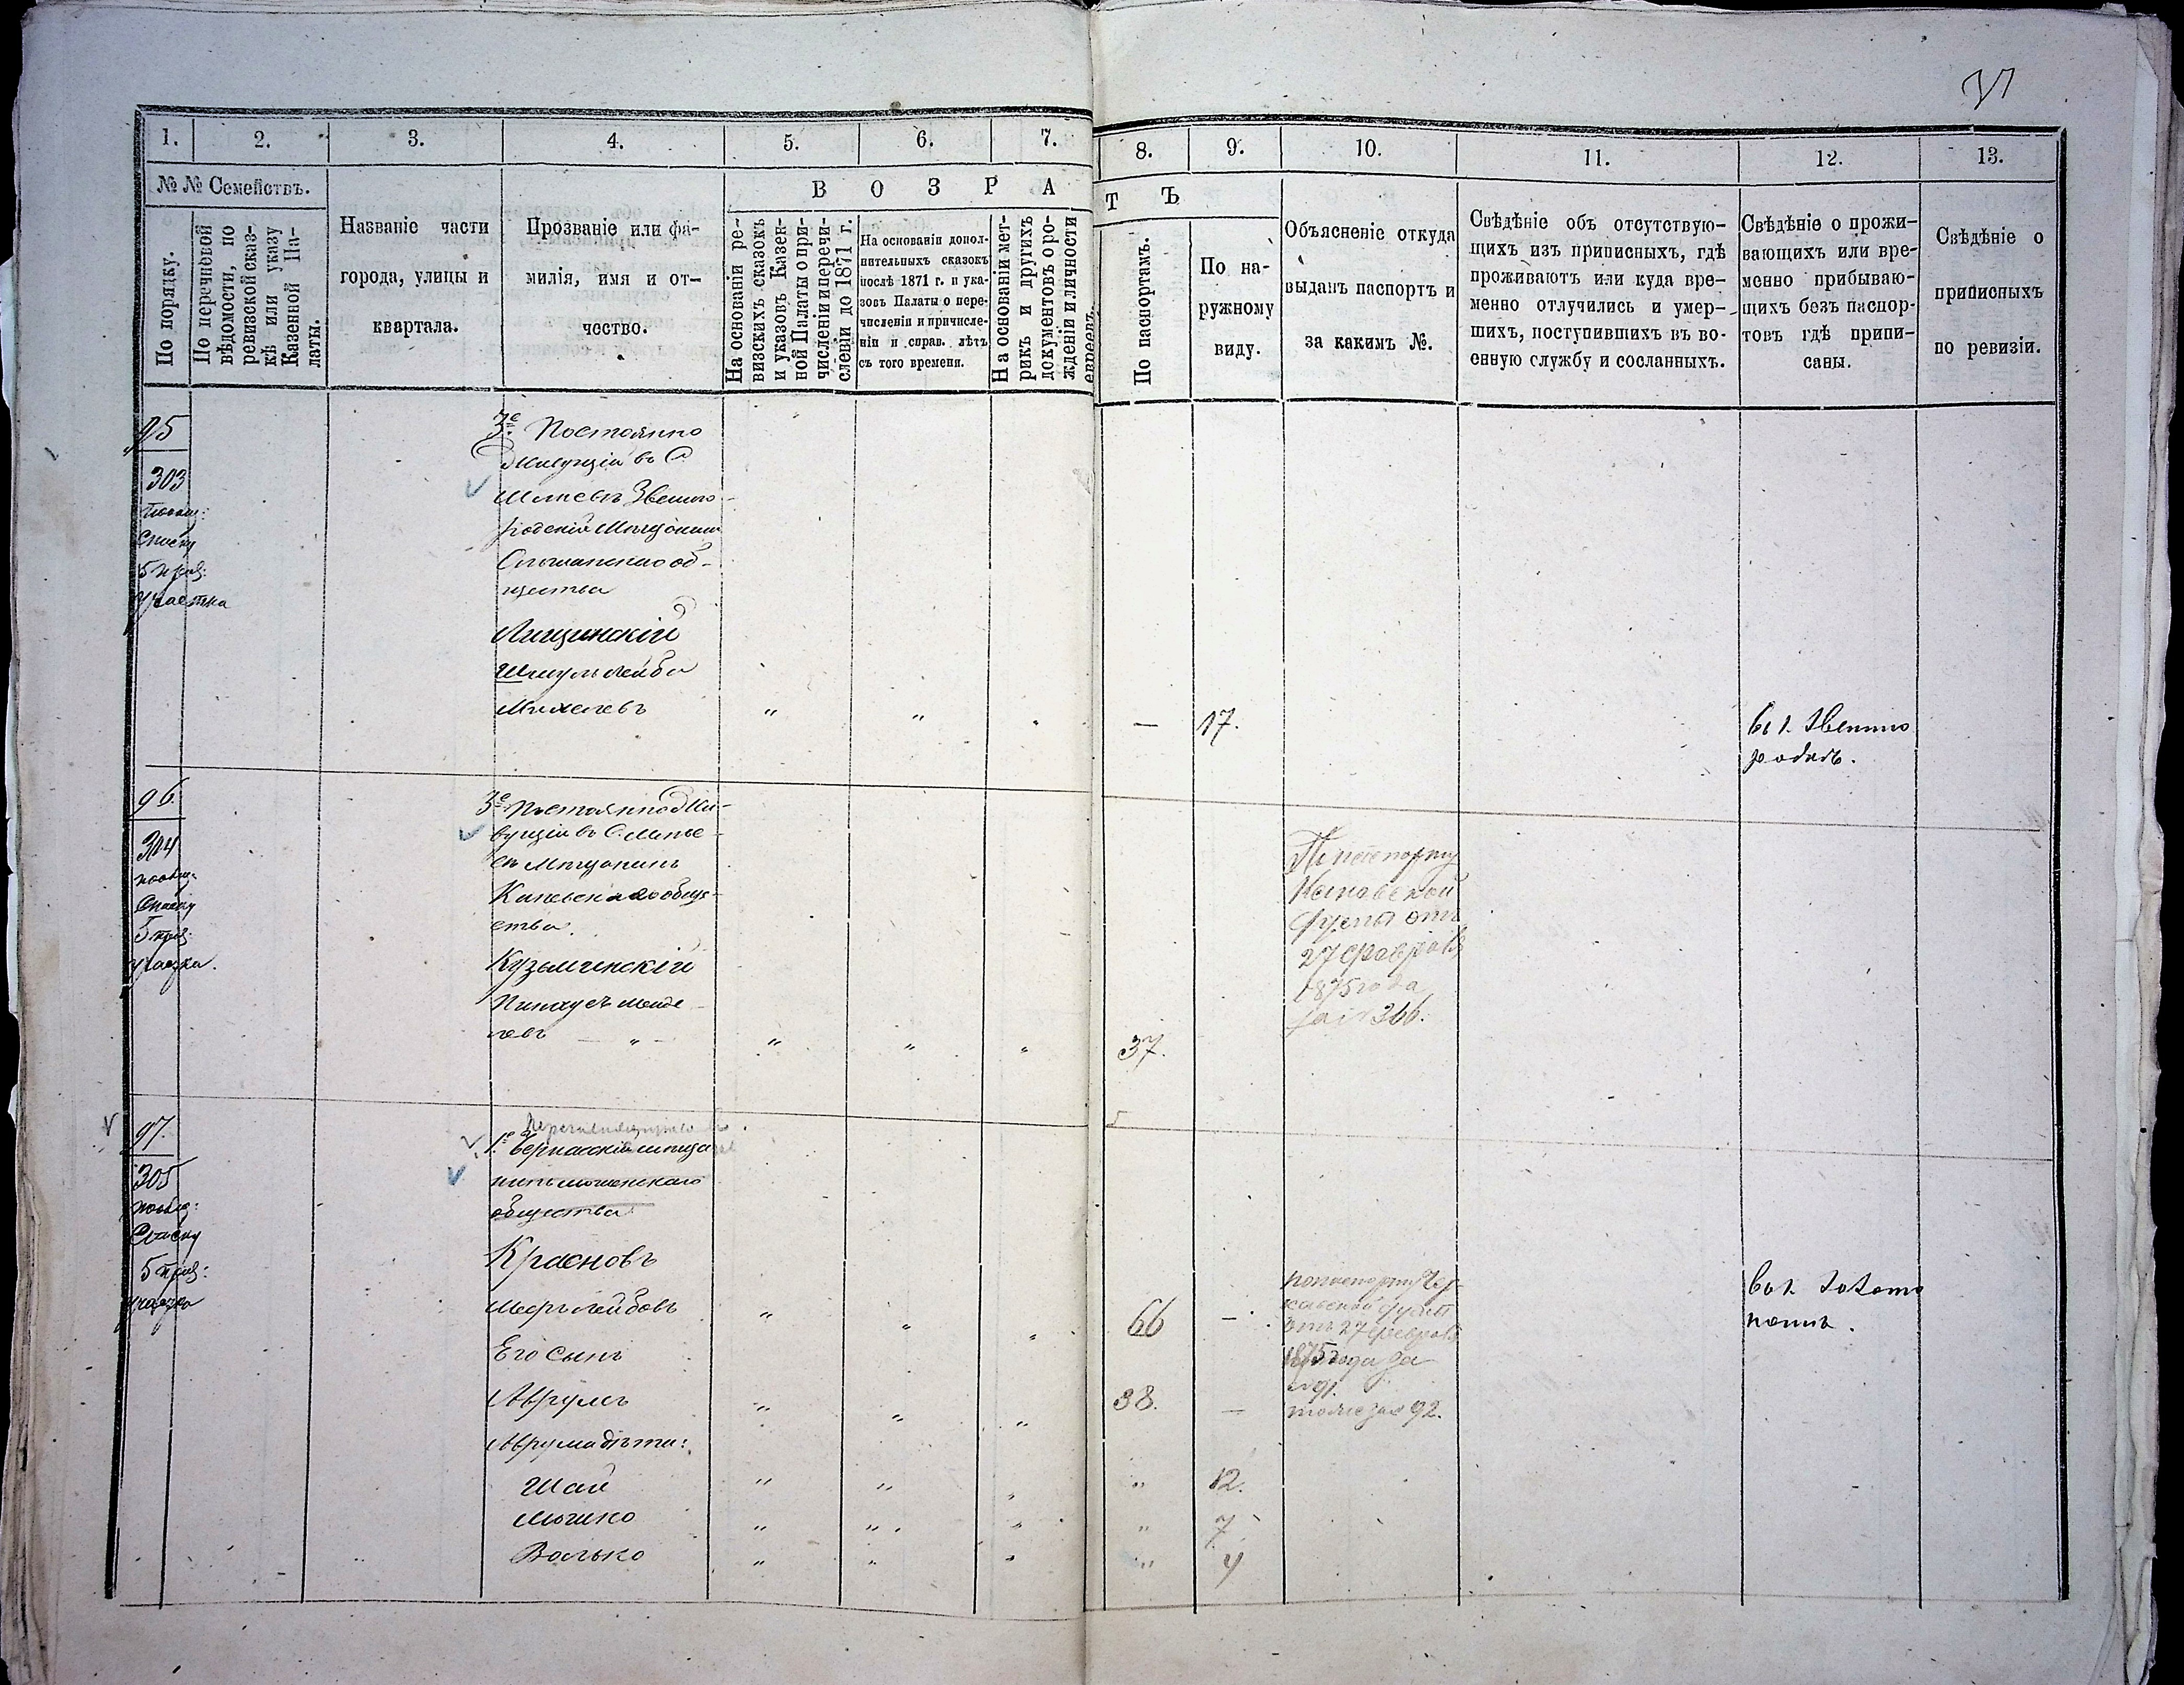 31
1. 2. 3. 4. 5. 6. 7. 8. 9. 10. 11. 12. 13.
№ № Семействъ.
По порядку.
По перечневой
вѣдомости, по
ревизской сказ-
кѣ или указу
Казенной Па-
латы.
Названіе части
города, улицы и
квартала.
Прозваніе или фа-
милія, имя и от-
чество.
В О З Р А
Т Ъ
На основаніи ре-
визскихъ сказокъ
и указовъ Казен-
ной Палаты о при-
численіи и перечи-
сленіи до 1871 г.
На основаніи допол-
нительныхъ сказокъ
послѣ 1871 г. и ука-
зовъ Палаты о пере-
численіи и причисле-
ніи и справ. лѣтъ
съ того времени.
На основаніи мет-
рикъ и другихъ
документовъ о ро-
жденіи и личности
евреевъ.
По паспортамъ.
По на-
ружному
виду.
Объясненіе откуда
выданъ паспортъ и
за какимъ №.
Свѣдѣніе объ отсутствую-
щихъ изъ приписныхъ, гдѣ
проживаютъ или куда вре-
менно отлучились и умер-
шихъ, поступившихъ въ во-
енную службу и сосланныхъ.
Свѣдѣніе о прожи-
вающихъ или вре-
менно прибываю-
щихъ безъ паспор-
товъ гдѣ припи-
саны.
Свѣдѣніе о
приписныхъ
по ревизіи.
95
303
Списку
5 приз:
участка
3е Постоянно
Живущій въ С
Звениго-
родскій Мѣщанинъ
Ольшанскаго об-
щества
Лищинскій
Шмуль Лейба
Михелевъ " " " — 17.
въ г. Звенино
родкѣ.
96.
304
Списку
5 приз:
участка.
3е Постоянно Жи-
вущій въ С.
Мѣщанинъ
Каневскаго общ-
ества.
Кузьминскій
Пинхусъ Менде-
левъ " " " " 37.
По паспорту
Каневской
Думы отъ
27 февраля
1875 года
за № 366.
97.
305
Списку
5 приз:
участка
1е Черкасскій мѣща
нинъ Мошенскаго
общества
Красновъ
Меерь Лейбовъ " " " 66 —
по паспорту Чер-
касской Думы
отъ 27 февраля
1875 года за
№ 91.
въ г. Золото
ношѣ.
Его сынъ
Аврумъ " " " 38. —
тоже за № 92.
Аврума дѣти:
Шая " " " " 12.
Мошко " " " " 7
Волько " " " " 4